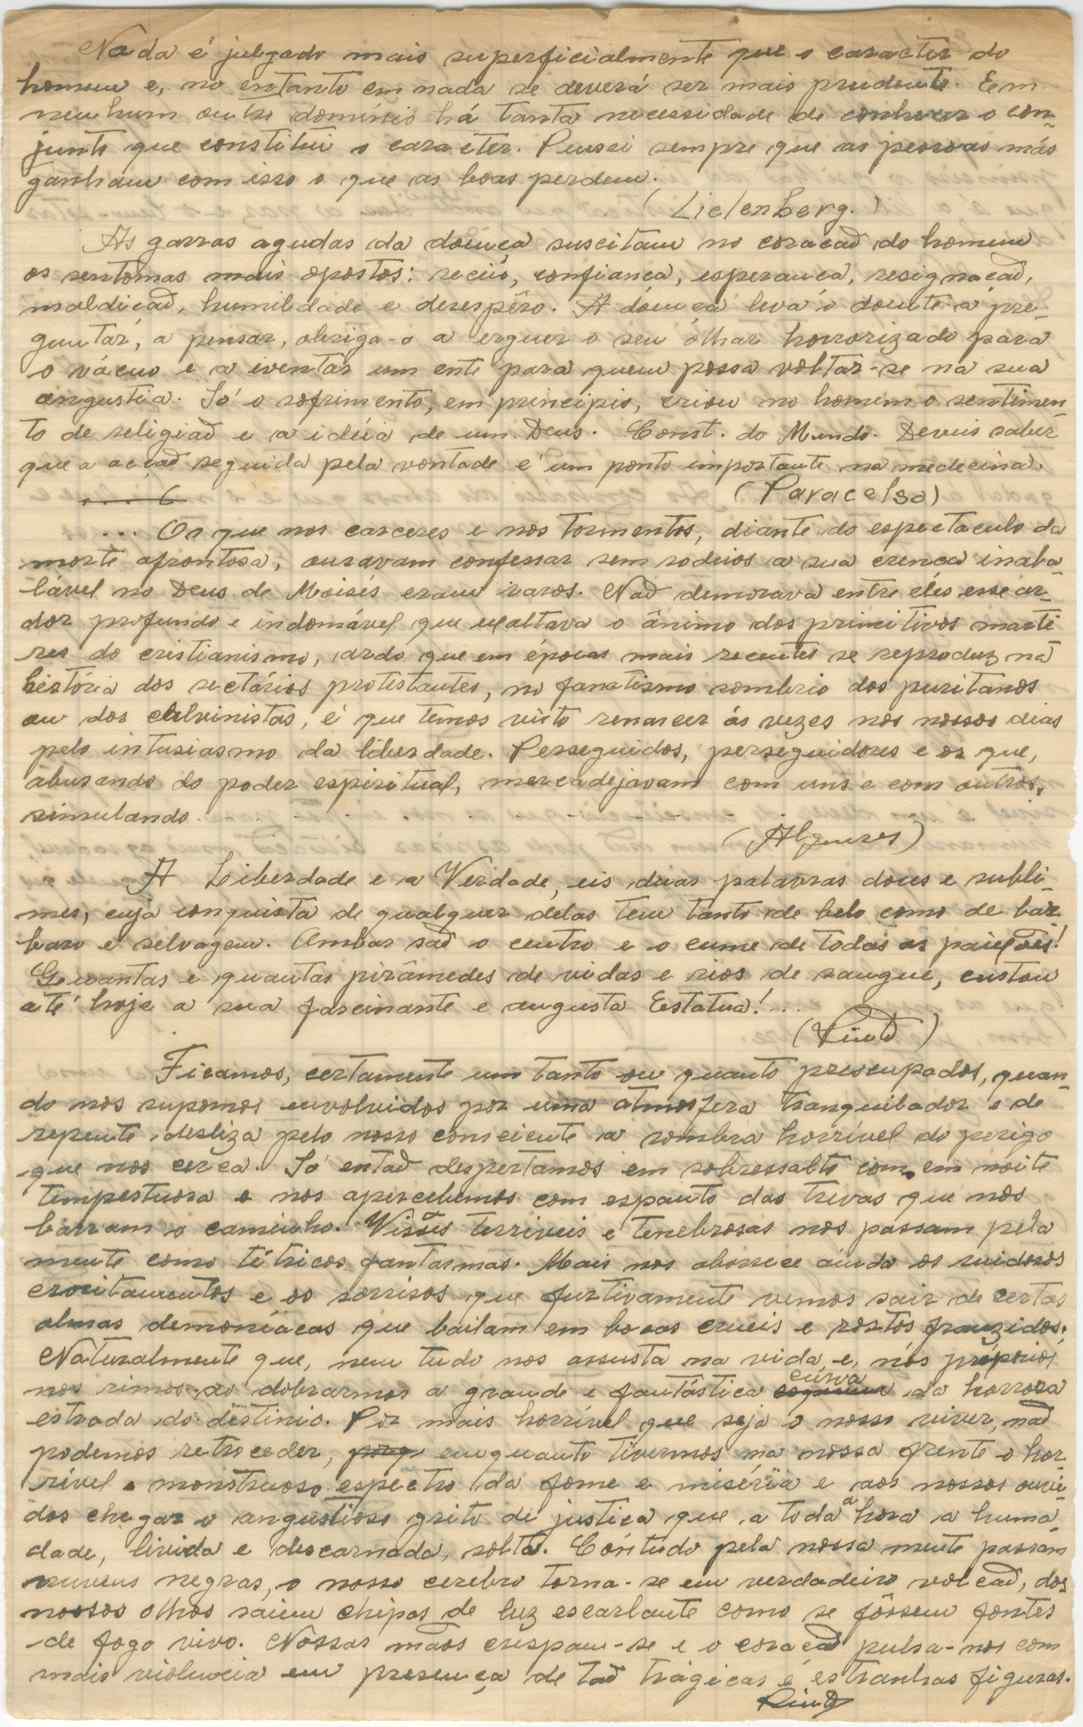 Nada é julgado mais superficialmente que o caracter do
homem e, no entanto em nada se deverá ser mais prudente. Em
nenhum outro dominio há tanta necessidade de conhecer o con-
junto que constitui o caracter. Pensei sempre que as pessoas más
ganham com isso o que as boas perdem.
(Lietenberg.)
As garras agudas da doença suscitam no coracaõ do homem
os sentomas mais opostos: receio, confianca, esperança, resignacaõ,
maldicaõ, humildade e desespêro. A doença leva o doente a pre-
guntár, a pensar, obriga-o a erguer o seu olhar horrorizado para
o vácuo e a iventar um ente para quem possa voltar-se na sua
angustia. Só o sofrimento, em principio, criou no homem o sentimen-
to de religiaõ e a idéia de um Deus. Const. do Mundo. Deveis saber
que a acçaõ seguida pela vontade é um ponto importante na medecina.
(Paracelso)
... Os que nos carceres e nos tormentos, diante do espectaculo da
morte afrontosa, ousavam confessar sem rodeios a sua crenca inaba-
lável no Deus de Moisés eram raros. Naõ demorava entre élés esse ar-
dor profundo e indomável que exaltava o ânimo dos primitivos marti-
res do cristianismo, ardo que em épocas mais recentes se reproduz na
história dos sectários protestantes, no fanatismo sombrio dos puritanos
ou dos calvinistas, é que temos visto renascer ás vezes nos nossos dias
pelo intusiasmo da liberdade. Perseguidos, perseguidores e os que,
abusando do poder espiritual, mercadejavam com uns e com outros,
simulando. . . . . . . . .
A Liberdade e a Verdade, eis duas palavras doces e subli-
mes, cuja conquista de qualquer délas tem tanto de belo como de bár-
baro e selvagem. Ambas saõ o centro e o cume de todas as paixões!
Quantas e quantas pirâmedes de vidas e rios de sangue, custou
até hoje a sua fascinante e augusta Estatua!...
Ficamos, certamente um tanto ou quanto preocupados, quan-
do nos supomos envolvidos por uma atmosfera tranquilador e de
repente desliza pelo nosso consciente a sombra horrível do perigo
que nos cerca. Só entaõ despertamos em sobressalto com em noite
tempestuosa e nos apercebemos com espanto das trevas que nos
barram o caminho. Visões terriveis e tenebrosas nos passam pela
mente como tétricos fantasmas. Mais nos aborrece ainda os ruidosos
e os sorrisos que furtivamente vemos sair de certas
almas demoníacas que bailam em bocas crueis e rostos franzidos.
Naturalmente que, nem tudo nos assusta na vida, e, nós próprios
nos rimos ao dobrarmos a grande e fantástica cúrva da horrosa
estrada do destinio. Por mais horrível que seja o nosso viver, naõ
podemos retroceder, enquanto tivermos na nossa frente o hor-
rivel e monstruoso espectro da fome e miseria e aos nossos ouvi-
dos chegar o angustioso grito de justiça que, a toda a hora a huma-
dade, livida e descarnada, solta. Contudo pela nossa mente passam
nuvens negras, o nosso cerebro torna-se em verdadeiro volcaõ, dos
nossos olhos saiem chipas de luz escarlante como se fôssem fontes
de fogo vivo. Nossas mãos crespam-se e o coracaõ pulsa-nos com
mais violencia em presença de taõ trágicas e estranhas figuras.